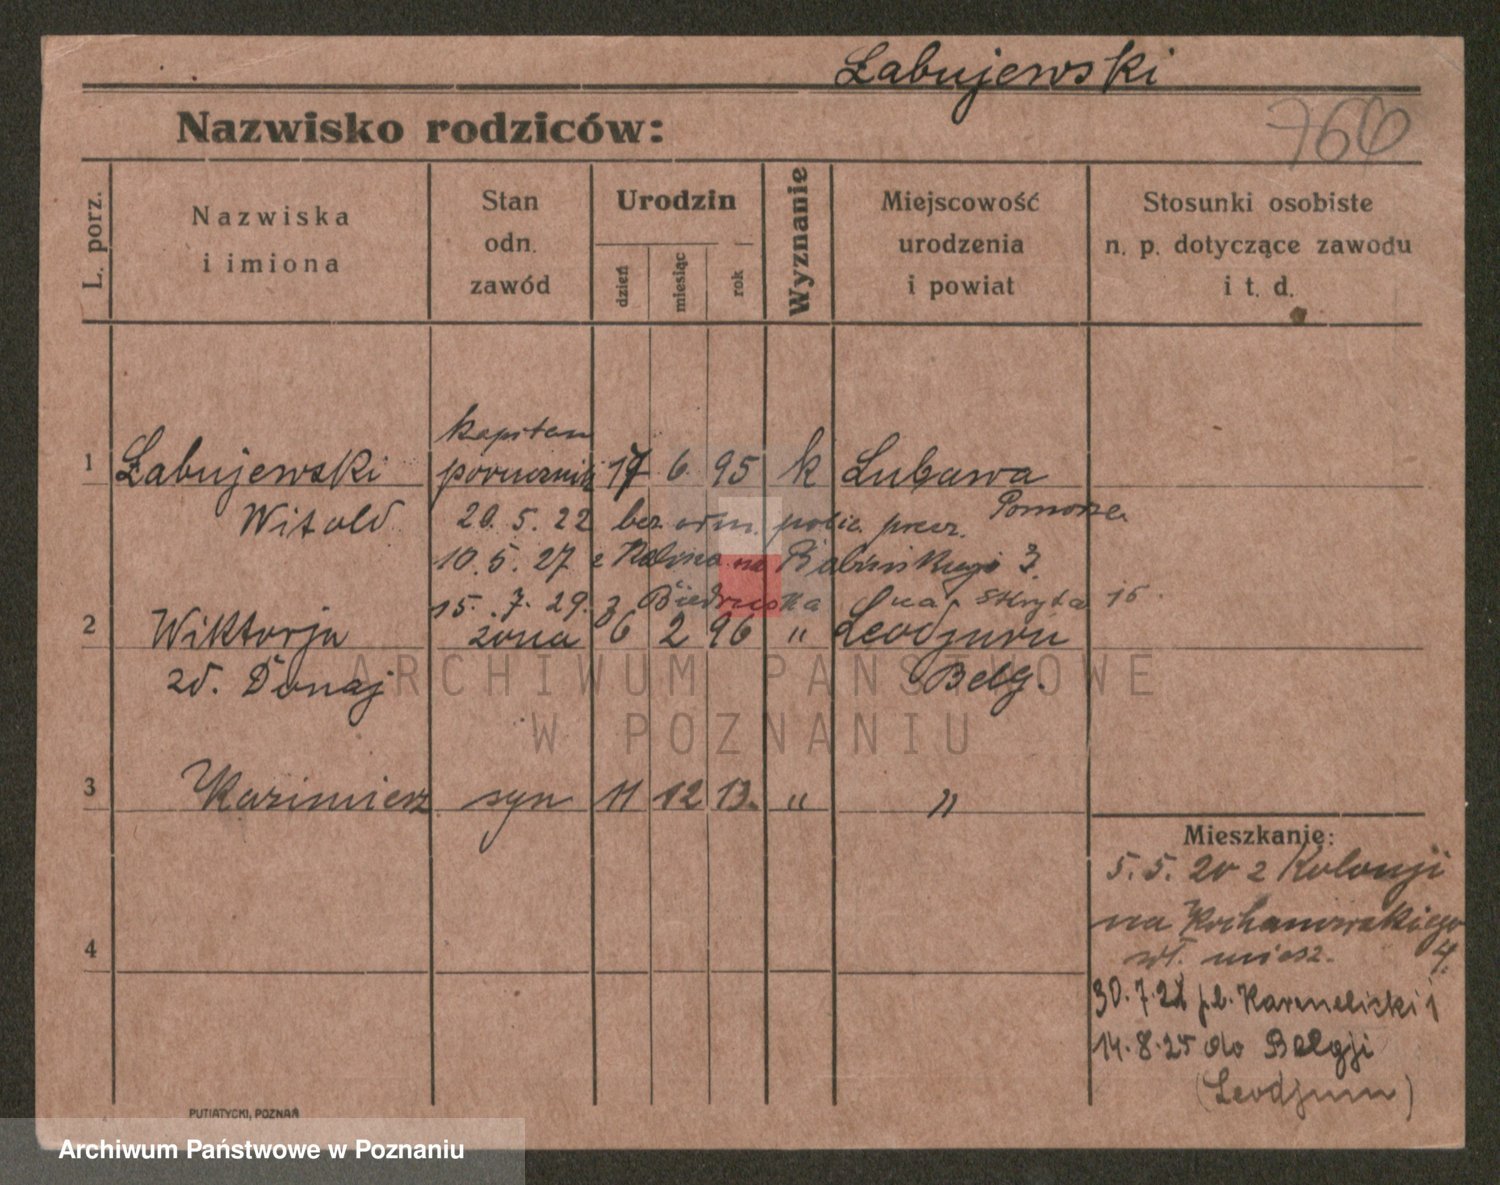 Łabujewski
766
Nazwisko rodziców:
L. porz.
Nazwiska
i imiona
Stan
odn.
zawód
Urodzin
dzień
miesiąc
rok
Wyznanie
Miejscowość
urodzenia
i powiat
Stosunki osobiste
n. p. dotyczące zawodu
i t. d.
kapitan
1 Łabujewski porucznik 17 6. 95 k Lubawa
Witold 20. 5. 22 bez orm. polic. przez. Pomorze
10. 5. 27 z na Babińskiego 3.
15. 7. 29. z Biedruska na Skryta 15.
2 Wiktorja żona 6 2 96 " Leodjum
zd. Dunaj Belg.
3 Kazimierz syn 11 12 13. " "
Mieszkanie:
5. 5. 20 z Kolonji
na Kochanowskiego
wł. miesz. 4.
4
30. 7. 21 pl. Karmelicki 1
14. 8. 25 do Belgji
(Leodjum)
PUTIATYCKI, POZNAŃ
ARCHIWUM PAŃSTWOWE
W POZNANIU
Archiwum Państwowe w Poznaniu